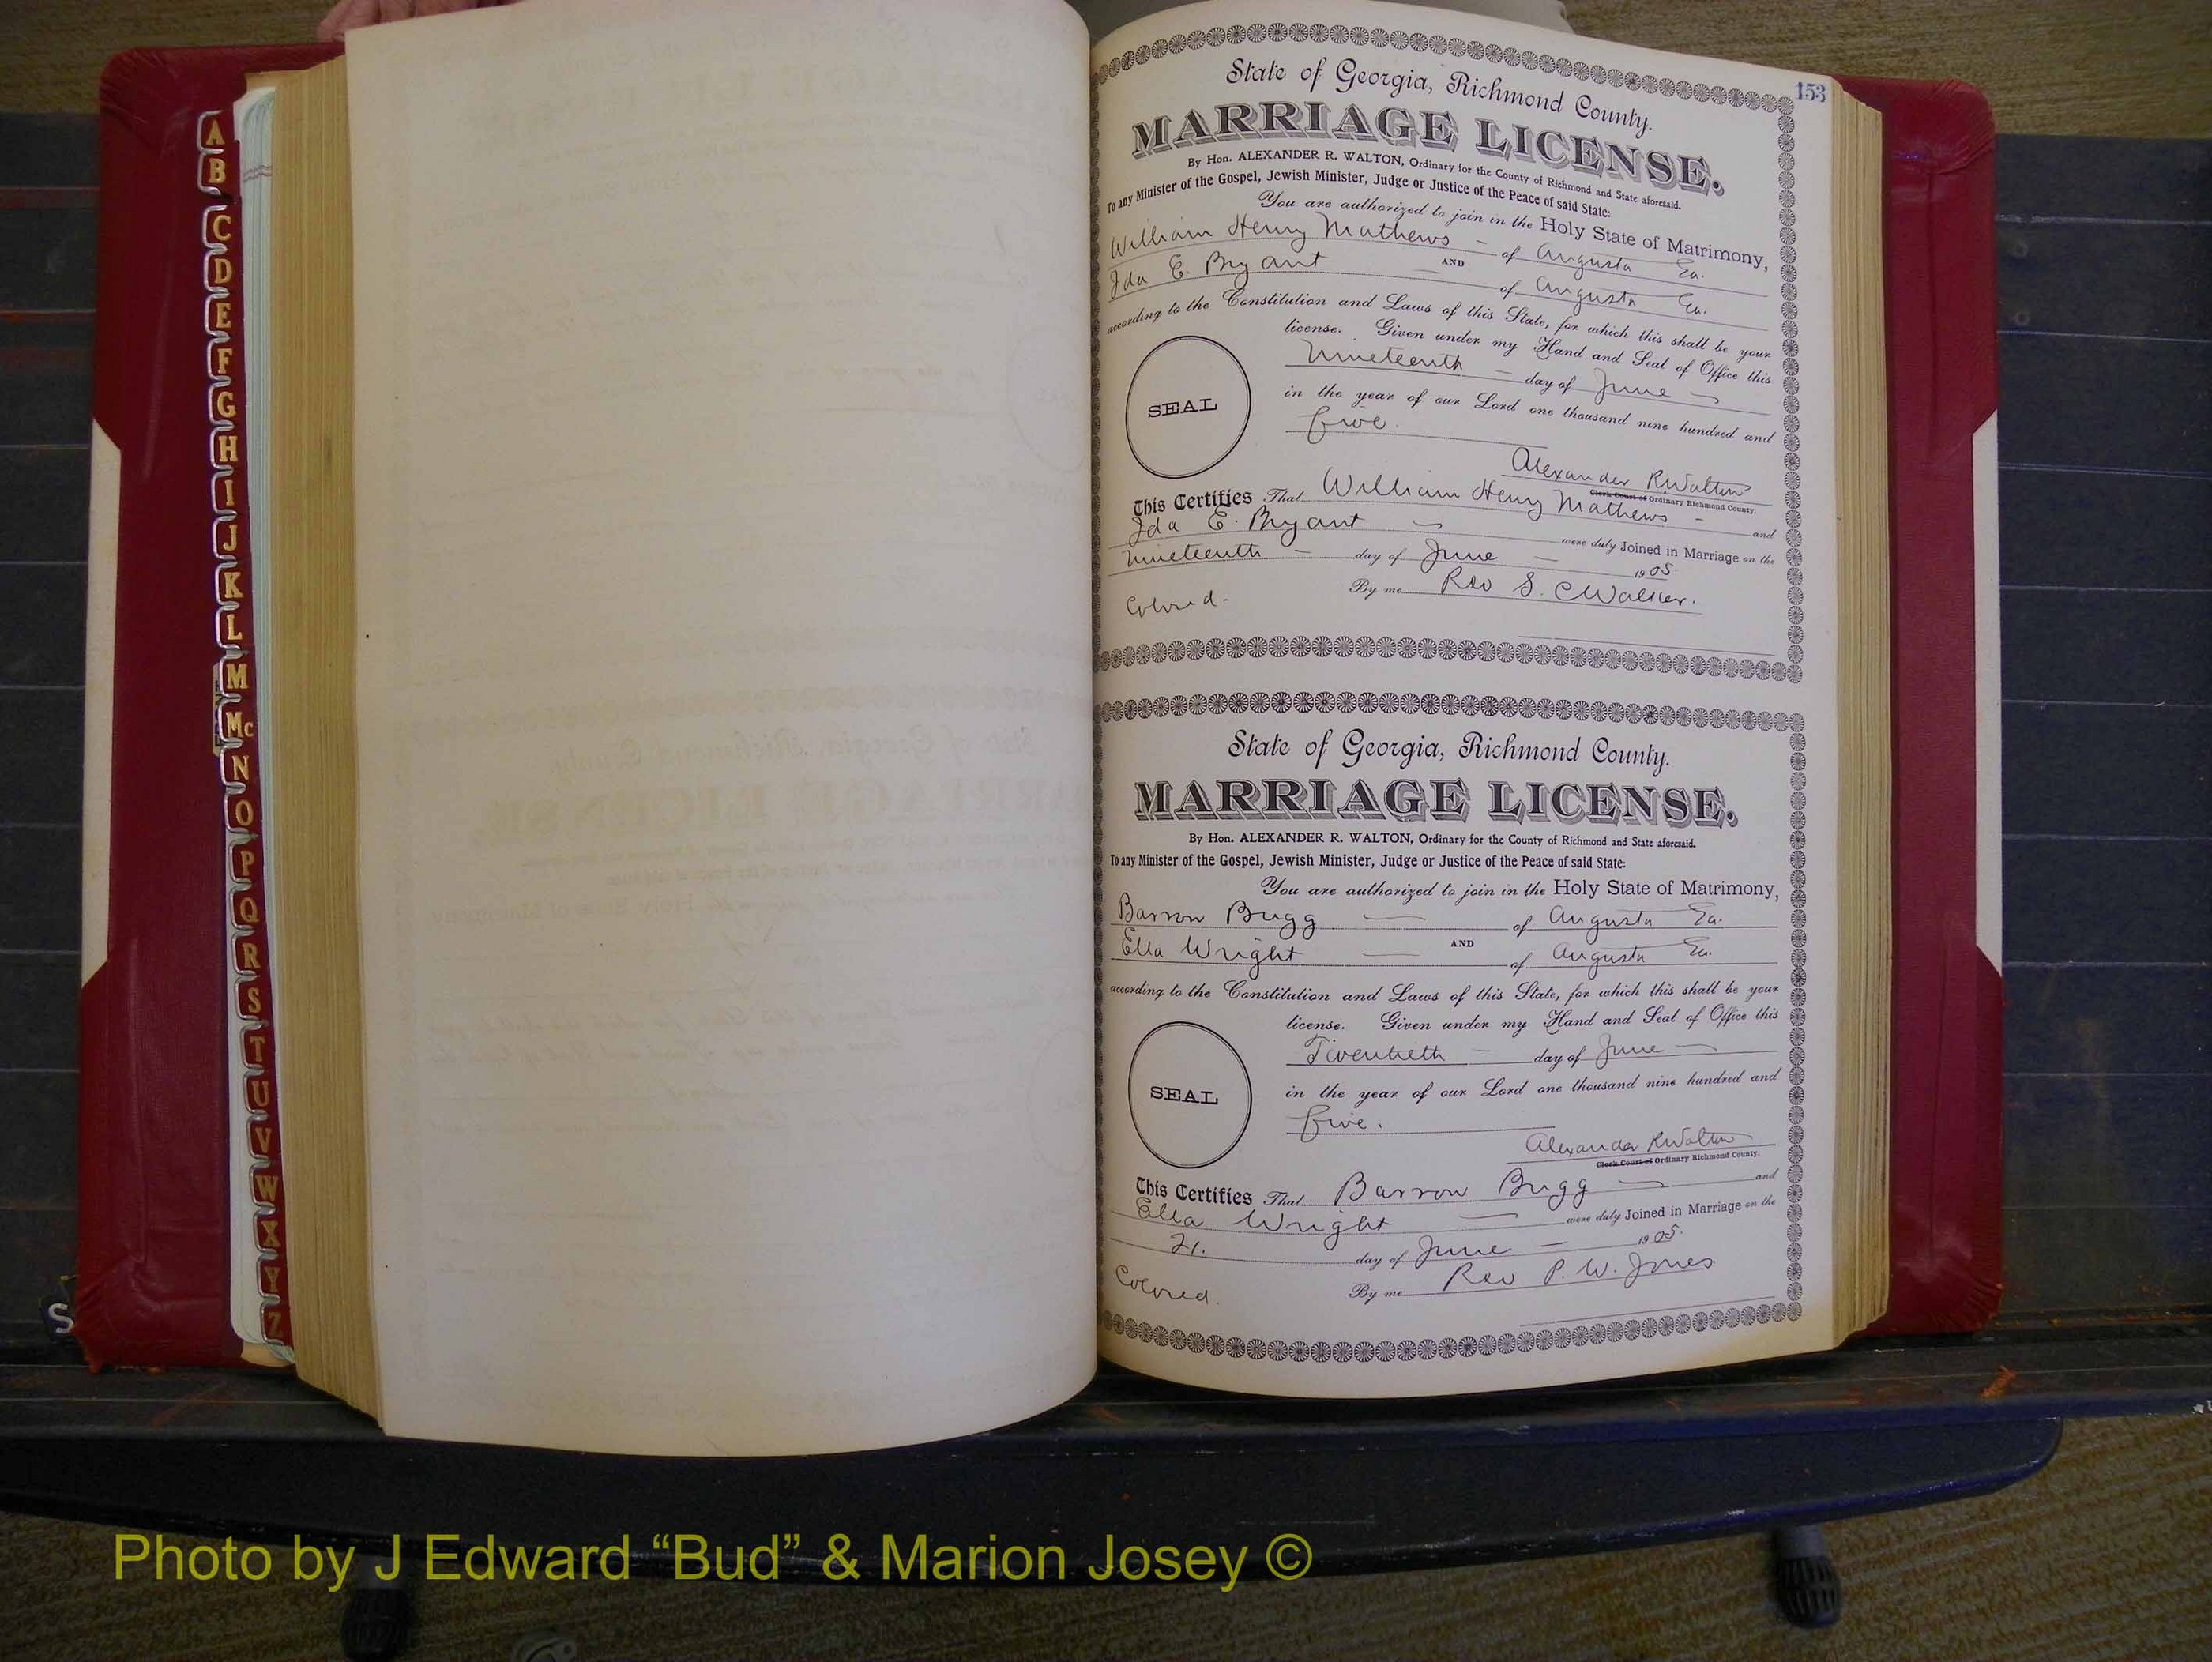 A
B
C
D
E
F
G
H
I
J
K
L
M
Mc
N
O
P
Q
R
S
T
U
V
W
X
Y
Z
S
153
State of Georgia, Richmond County.
MARRIAGE LICENSE.
By Hon. ALEXANDER R. WALTON, Ordinary for the County of Richmond and State aforesaid.
To any Minister of the Gospel, Jewish Minister, Judge or Justice of the Peace of said State:
You are authorized to join in the Holy State of Matrimony,
William Henry Mathews - of Augusta Ga.
AND
Ida E. Bryant of Augusta Ga.
according to the Constitution and Laws of this State, for which this shall be your
license. Given under my Hand and Seal of Office this
Nineteenth - day of June
in the year of our Lord one thousand nine hundred and
five.
SEAL
Alexander R Walton
Clerk Court of Ordinary Richmond County.
This Certifies That William Henry Mathews - and
Ida E. Bryant were duly Joined in Marriage on the
Nineteenth - day of June - 1905
By me Rev S. C Walker.
Colored.
State of Georgia, Richmond County.
MARRIAGE LICENSE.
By Hon. ALEXANDER R. WALTON, Ordinary for the County of Richmond and State aforesaid.
To any Minister of the Gospel, Jewish Minister, Judge or Justice of the Peace of said State:
You are authorized to join in the Holy State of Matrimony,
Barron Bugg of Augusta Ga.
AND
Ella Wright of Augusta Ga.
according to the Constitution and Laws of this State, for which this shall be your
license. Given under my Hand and Seal of Office this
Twentieth - day of June
in the year of our Lord one thousand nine hundred and
five.
SEAL
Alexander R Walton
Clerk Court of Ordinary Richmond County.
This Certifies That Barron Bugg and
Ella Wright were duly Joined in Marriage on the
21. day of June - 1905.
By me Rev P. W. Jones
Colored.
Photo by J Edward “Bud” & Marion Josey ©